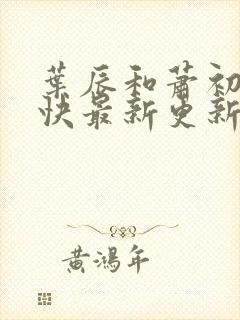 葉辰和蕭初
快最新更新
黃鴻年